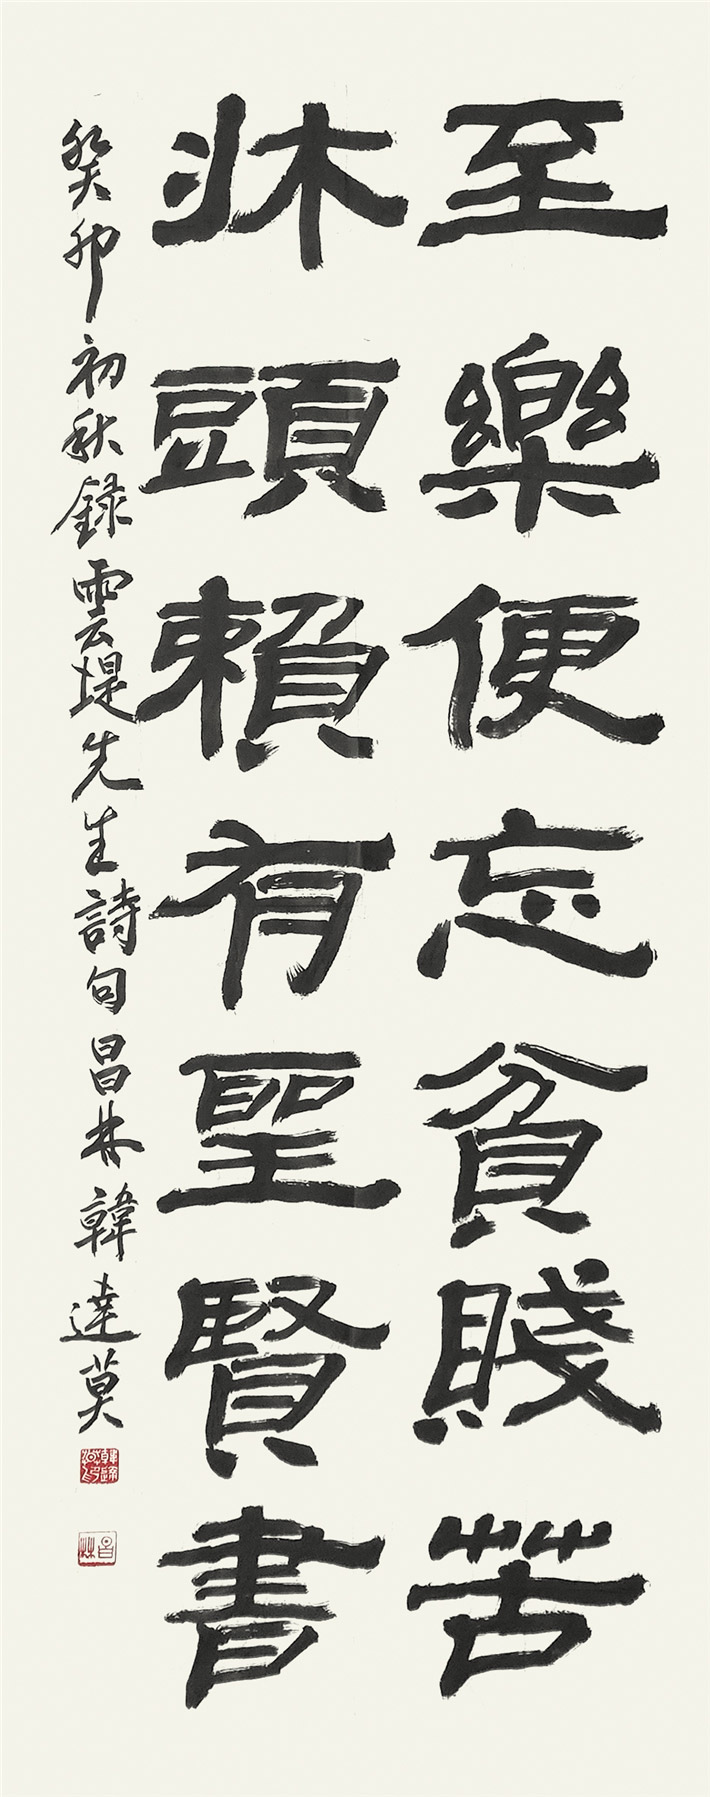 至樂便忘貧賤苦
牀頭賴有聖賢書
癸卯初秋録雲堤先生詩句昌林韓達莫
昌林